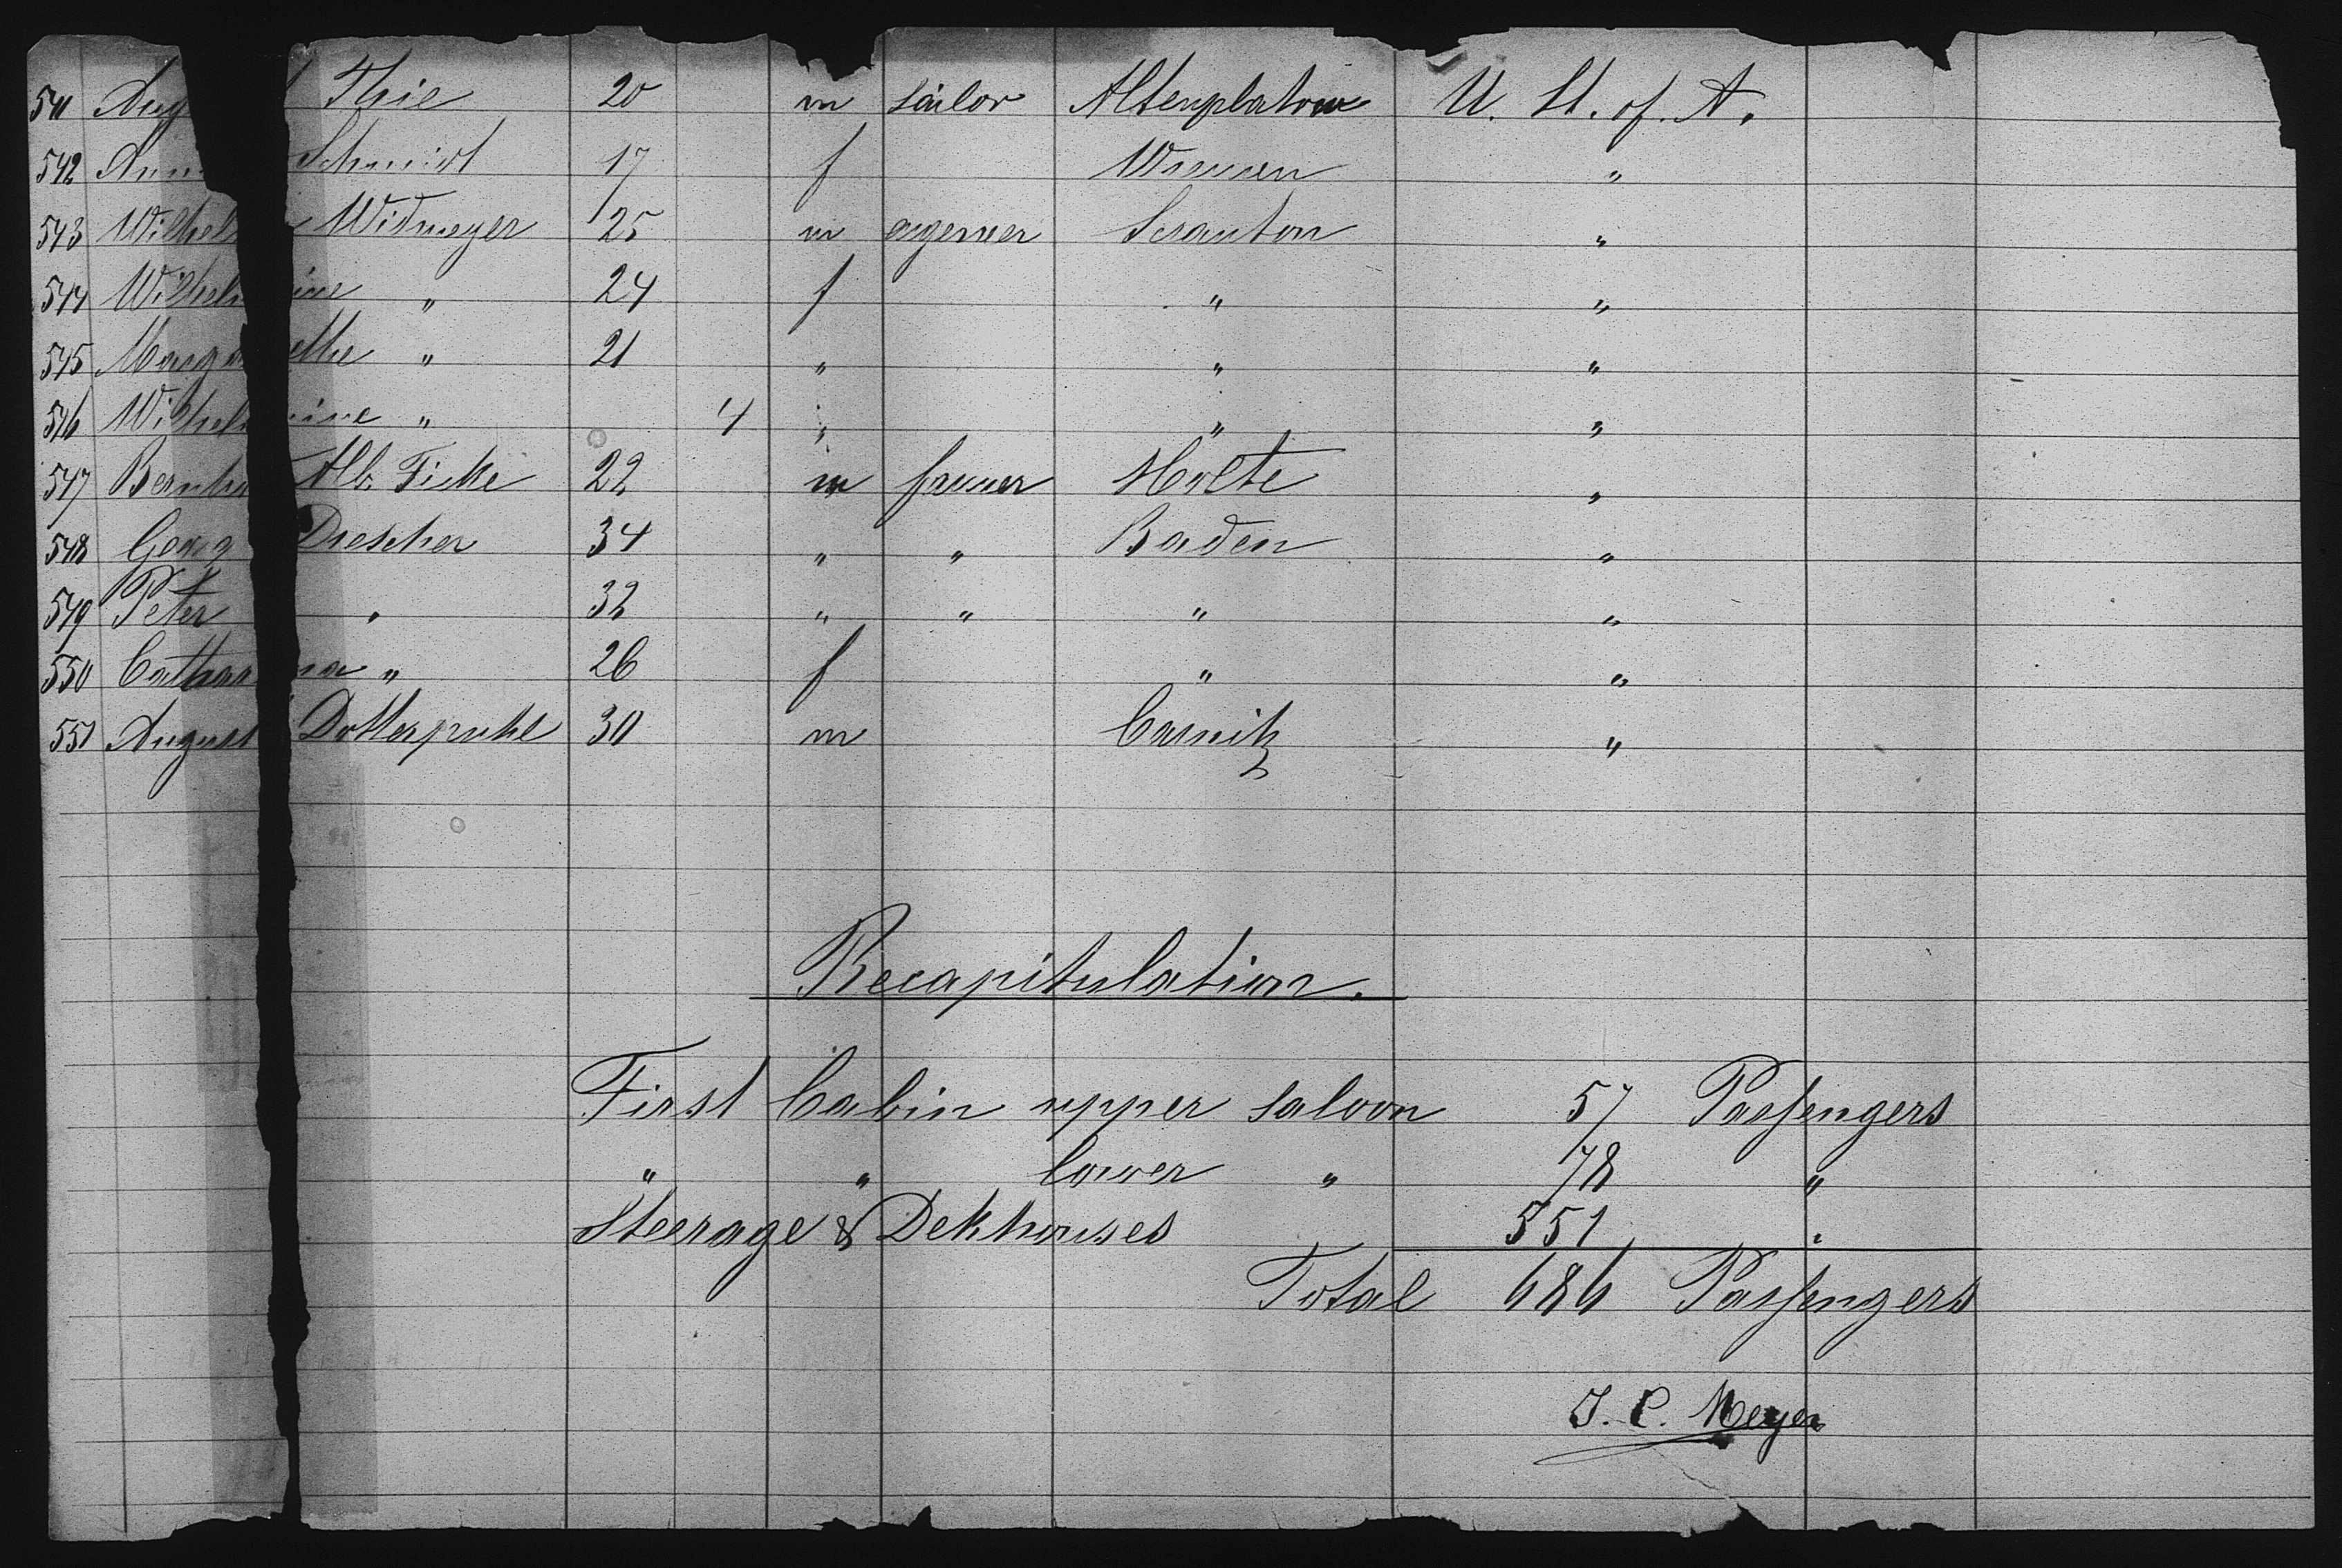 541 Aug Thie 20 m sailor Altenplatow U. St. of. A.
542 Ann Schmidt 17 f Wremen "
543 Wilhel Widmeyer 25 m Scranton "
544 Wilhel ine " 24 f " "
545 Marga ethe " 21 " " "
546 Wilhel ine " 4 " " "
547 Bernha Alb. Ficke 22 m farmer Holte "
548 Georg Drescher 34 " " Baden "
549 Peter " 32 " " " "
550 Cathar na " 26 f " "
551 August Dotterpuhl 30 m "
Recapitulation.
First Cabin upper saloon 57 Passengers
" " lower " 78 "
Steerage & Dekhouses 551 "
Total 686 Passengers
J. C. Meyer